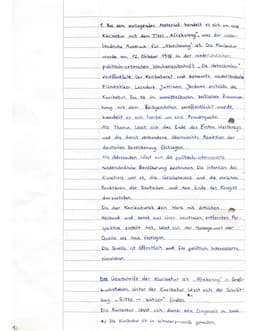 1. Bei dem vorliegenden Material handelt es sich um eine
Karikatur mit dem Titel „Afrekening", was der nieder-
ländische Ausdruck für „Abrechnung" ist. Die Karikatur
wurde am 12. Oktober 1918 in der niederländischen
politisch-satirischen Wochenzeitschrift „De
veröffentlicht. Der Karikaturist und bekannte niederländische
Jordaan erstellte die
Karikatur. Da sie im unmittelbaren politischen Zusammen-
hang mit dem veröffentlicht wurde,
handelt es sich hierbei um eine Primärquelle.
Als Thema lässt sich das Ende des Ersten Weltkriegs
und die damit verbundene Reaktion der
deutschen Bevölkerung festlegen.
Als Adressaten lässt sich die politisch interessierte
Niederländische Bevölkerung bestimmen. Die Intention des
Künstlers war es, die Geschehnisse und die
Reaktionen der Deutschen auf das Ende des Krieges
darzustellen.
Da der Karikaturist dem Werk mit zeitlichem
Abstand und somit aus einer neutralen, entfernten Per-
spektive erstellt hat, lässt sich der Aussagewert der
Quelle als hoch festlegen.
Die Quelle ist öffentlich und für politisch Interessierte
bestimmt.
Die Überschrift der Karikatur ist „Afrekening" in Groß-
buchstaben. Unter der Karikatur lässt sich der Schrift-
zug finden.
Die Karikatur lässt sich durch eine Diagonale in zwei
Die Karikatur ist in schwarz-weiß gehalten.